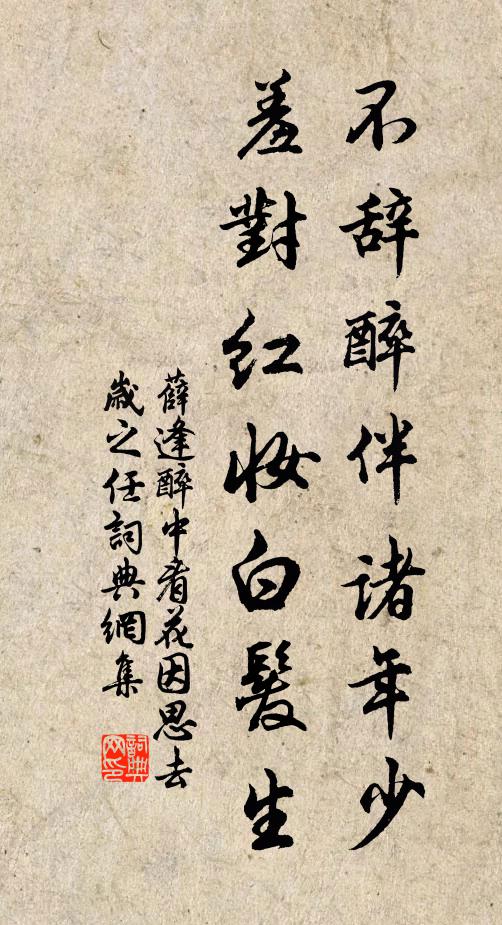 不辞醉伴诸年少
羞對红妆白髮生
薛逢醉中看花因思去
歲之任詞典網集
詞典
网印